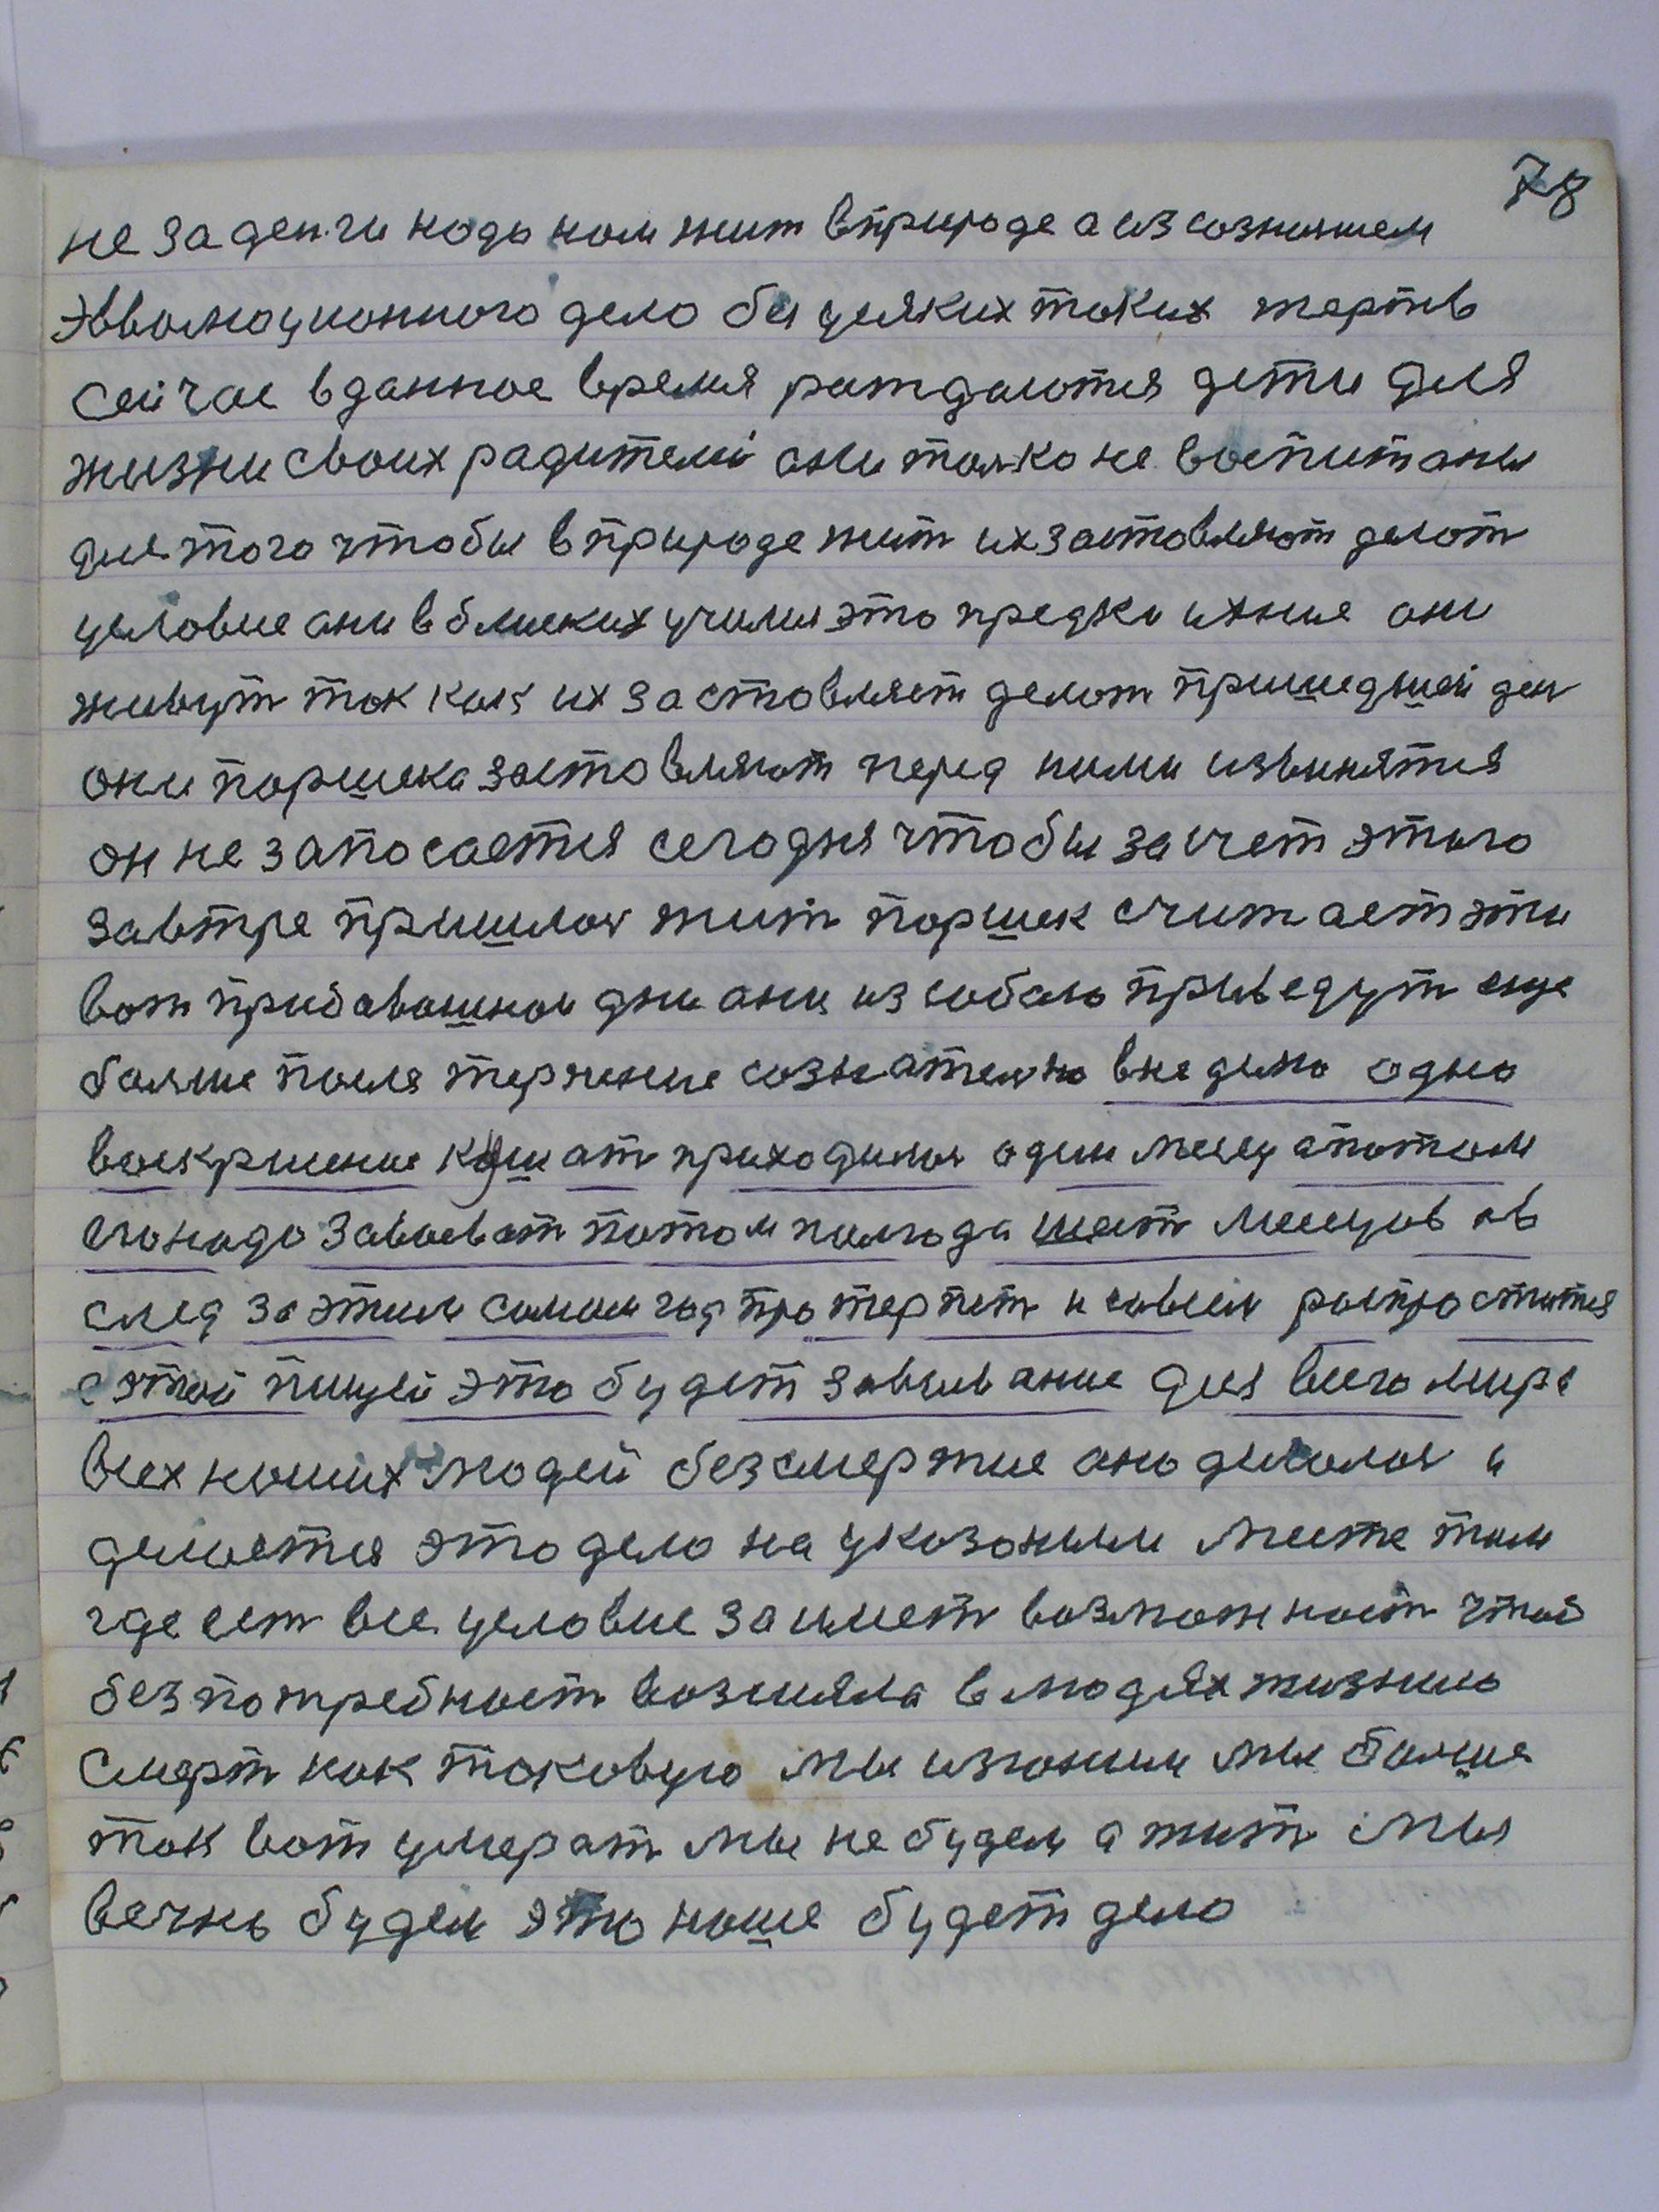 78
не за ден.ги надо нам жит вприроде а изсознанием
Эвволюционного дело без усяких таких жертв
Сейчас вданное время рождаются дети для
жизни своих радителей они толко не воспитаны
для того чтобы вприроде жит их заставляют делат
условие они в близких учился это предки ихние они
живут так как их заставляет делат пришедшей ден
они поршека заставляют перед ними извинятися
он не запасается сегодня чтобы засчет этого
завтре пришлос жит Поршек считает эти
вот прибавшиеся дни они из собаю приведут еще
болше после терпение сознателно внедело одно
воскрисение кушат приходилос один месец апотом
егонадо завоеват потом полгода шест месецов ав
след за этим самым год протерпет и савсем распроститися
с этой пищей это будет завоевание для всего мира
всех наших людей безсмертие оно делалос и
делается это дело на указаным месте там
где ест все условие заимет возможност чтоб
безпотребност возникла влюдях жизнию
Смерт как таковую мы изгоним мы болше
так вот умерат мы не будем а жит мы
вечнь будем это наше будет дело